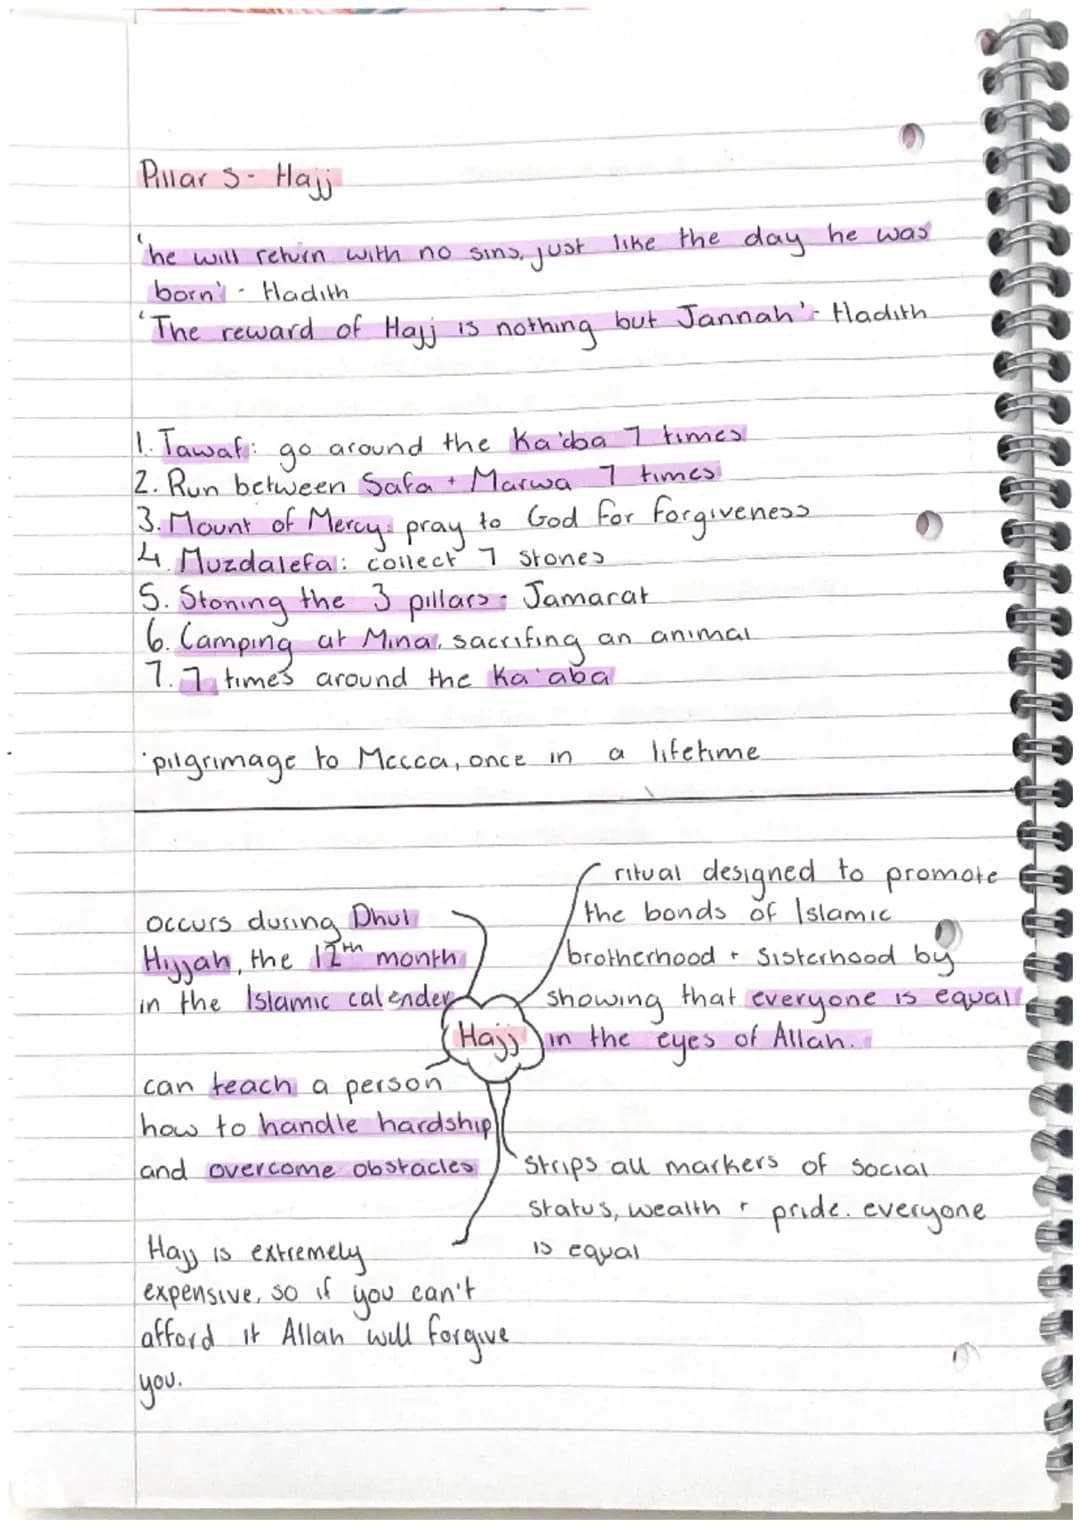 Pillar 5 - Hajj
'he will return with no sins, just like the day he was
born' - Hadith
'The reward of Hajj is nothing but Jannah' - Hadith
1. Tawaf: go around the Ka'aba 7 times
2. Run between Safa + Marwa 7 times
3. Mount of Mercy: pray to God for forgiveness
4. Muzdalefa: collect 7 stones
5. Stoning the 3 pillars - Jamarat
6. Camping at Mina, sacrifing an animal
7. 7 times around the Ka'aba
·pilgrimage to Mecca, once in a lifetime
occurs during Dhul
Hijjah, the 12th month
in the Islamic calender
ritual designed to promote
the bonds of Islamic
brotherhood + sisterhood by
showing that everyone is equal
in the eyes of Allah.
Hajj
can teach a person
how to handle hardship
and overcome obstacles
Strips all markers of social
status, wealth + pride. everyone
is equal
Hajj is extremely
expensive, so if you can't
afford it Allah will forgive
you.